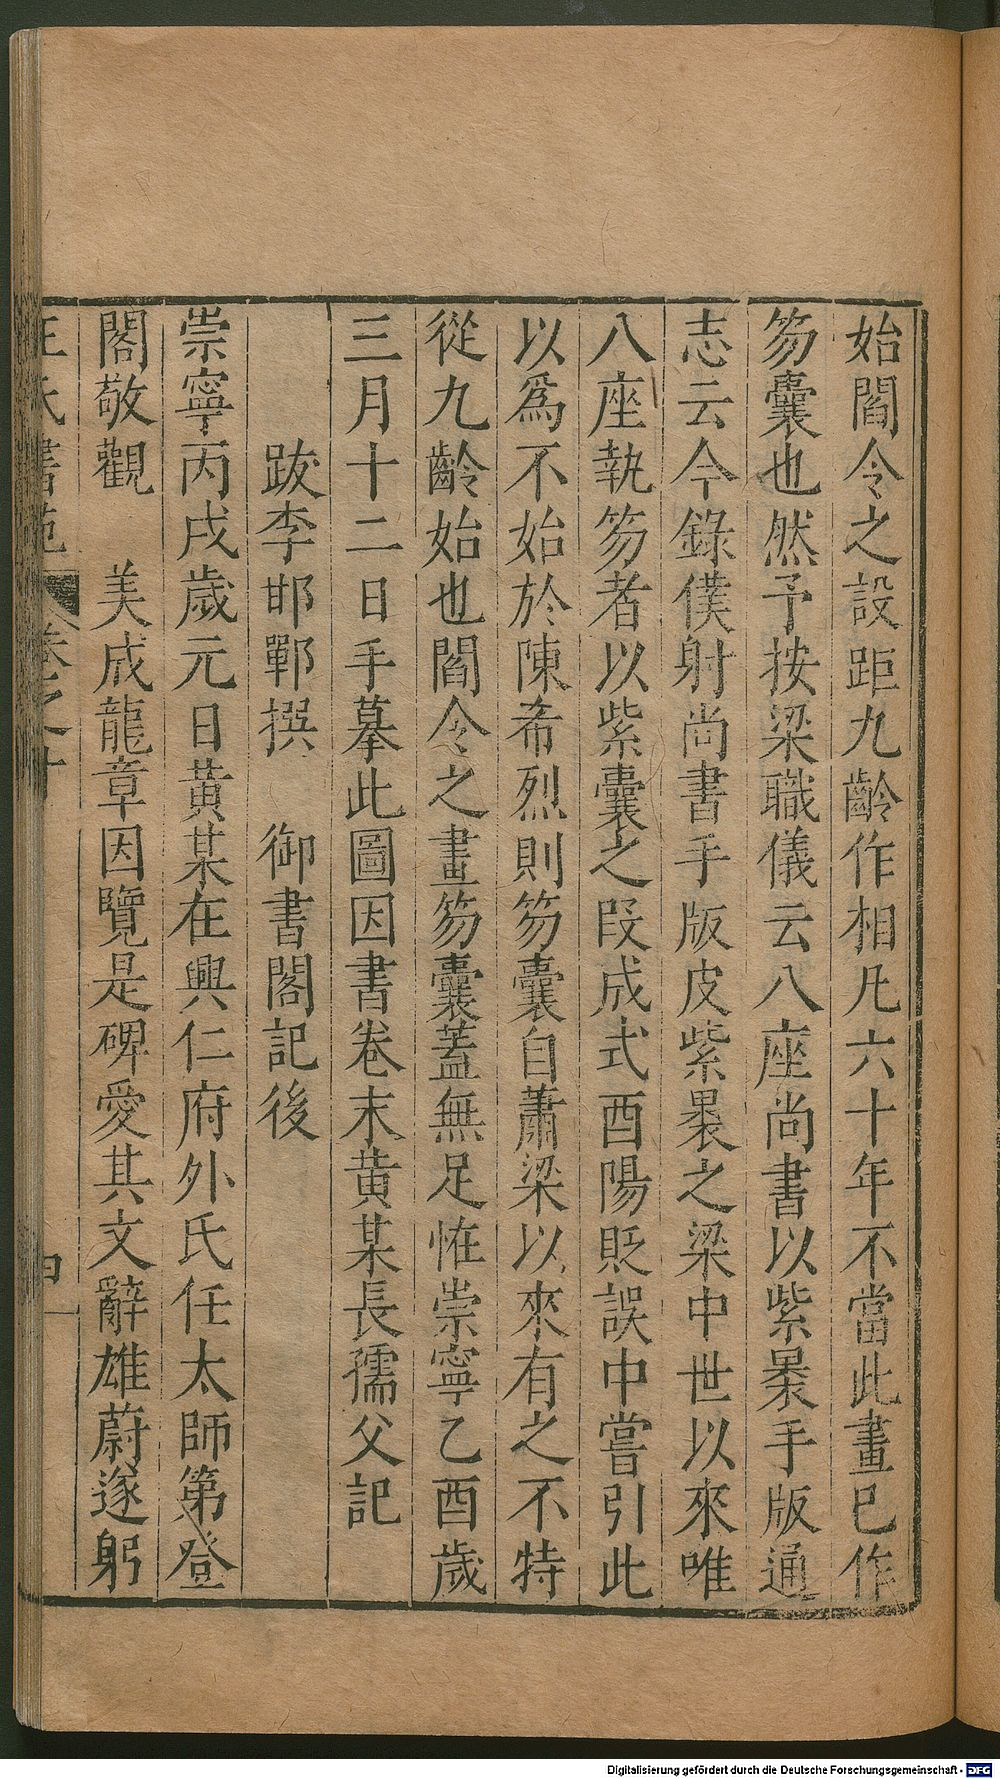 始閻令之設距九齡作相凡六十年不當此畫已作
笏囊也然予按梁職儀云八座尚書以紫褁手版通
志云今錄僕射尚書手版皮紫褁之梁中世以來唯
八座執笏者以紫囊之段成式酉陽貶誤中嘗引此
以爲不始於陳希烈則笏囊自蕭梁以來有之不特
從九齡始也閻令之畫笏囊蓋無足恠崇寧乙酉歲
三月十二日手摹此圖因書卷末黄某長孺父記
跋李邯鄲撰 御書閣記後
崇寧丙戌歲元日黄某在興仁府外氏任太師第登
閣敬觀 美成龍章因覽是碑愛其文辭雄蔚遂躬
王氏書苑 卷之十
四一
Digitalisierung gefördert durch die Deutsche Forschungsgemeinschaft - DFG